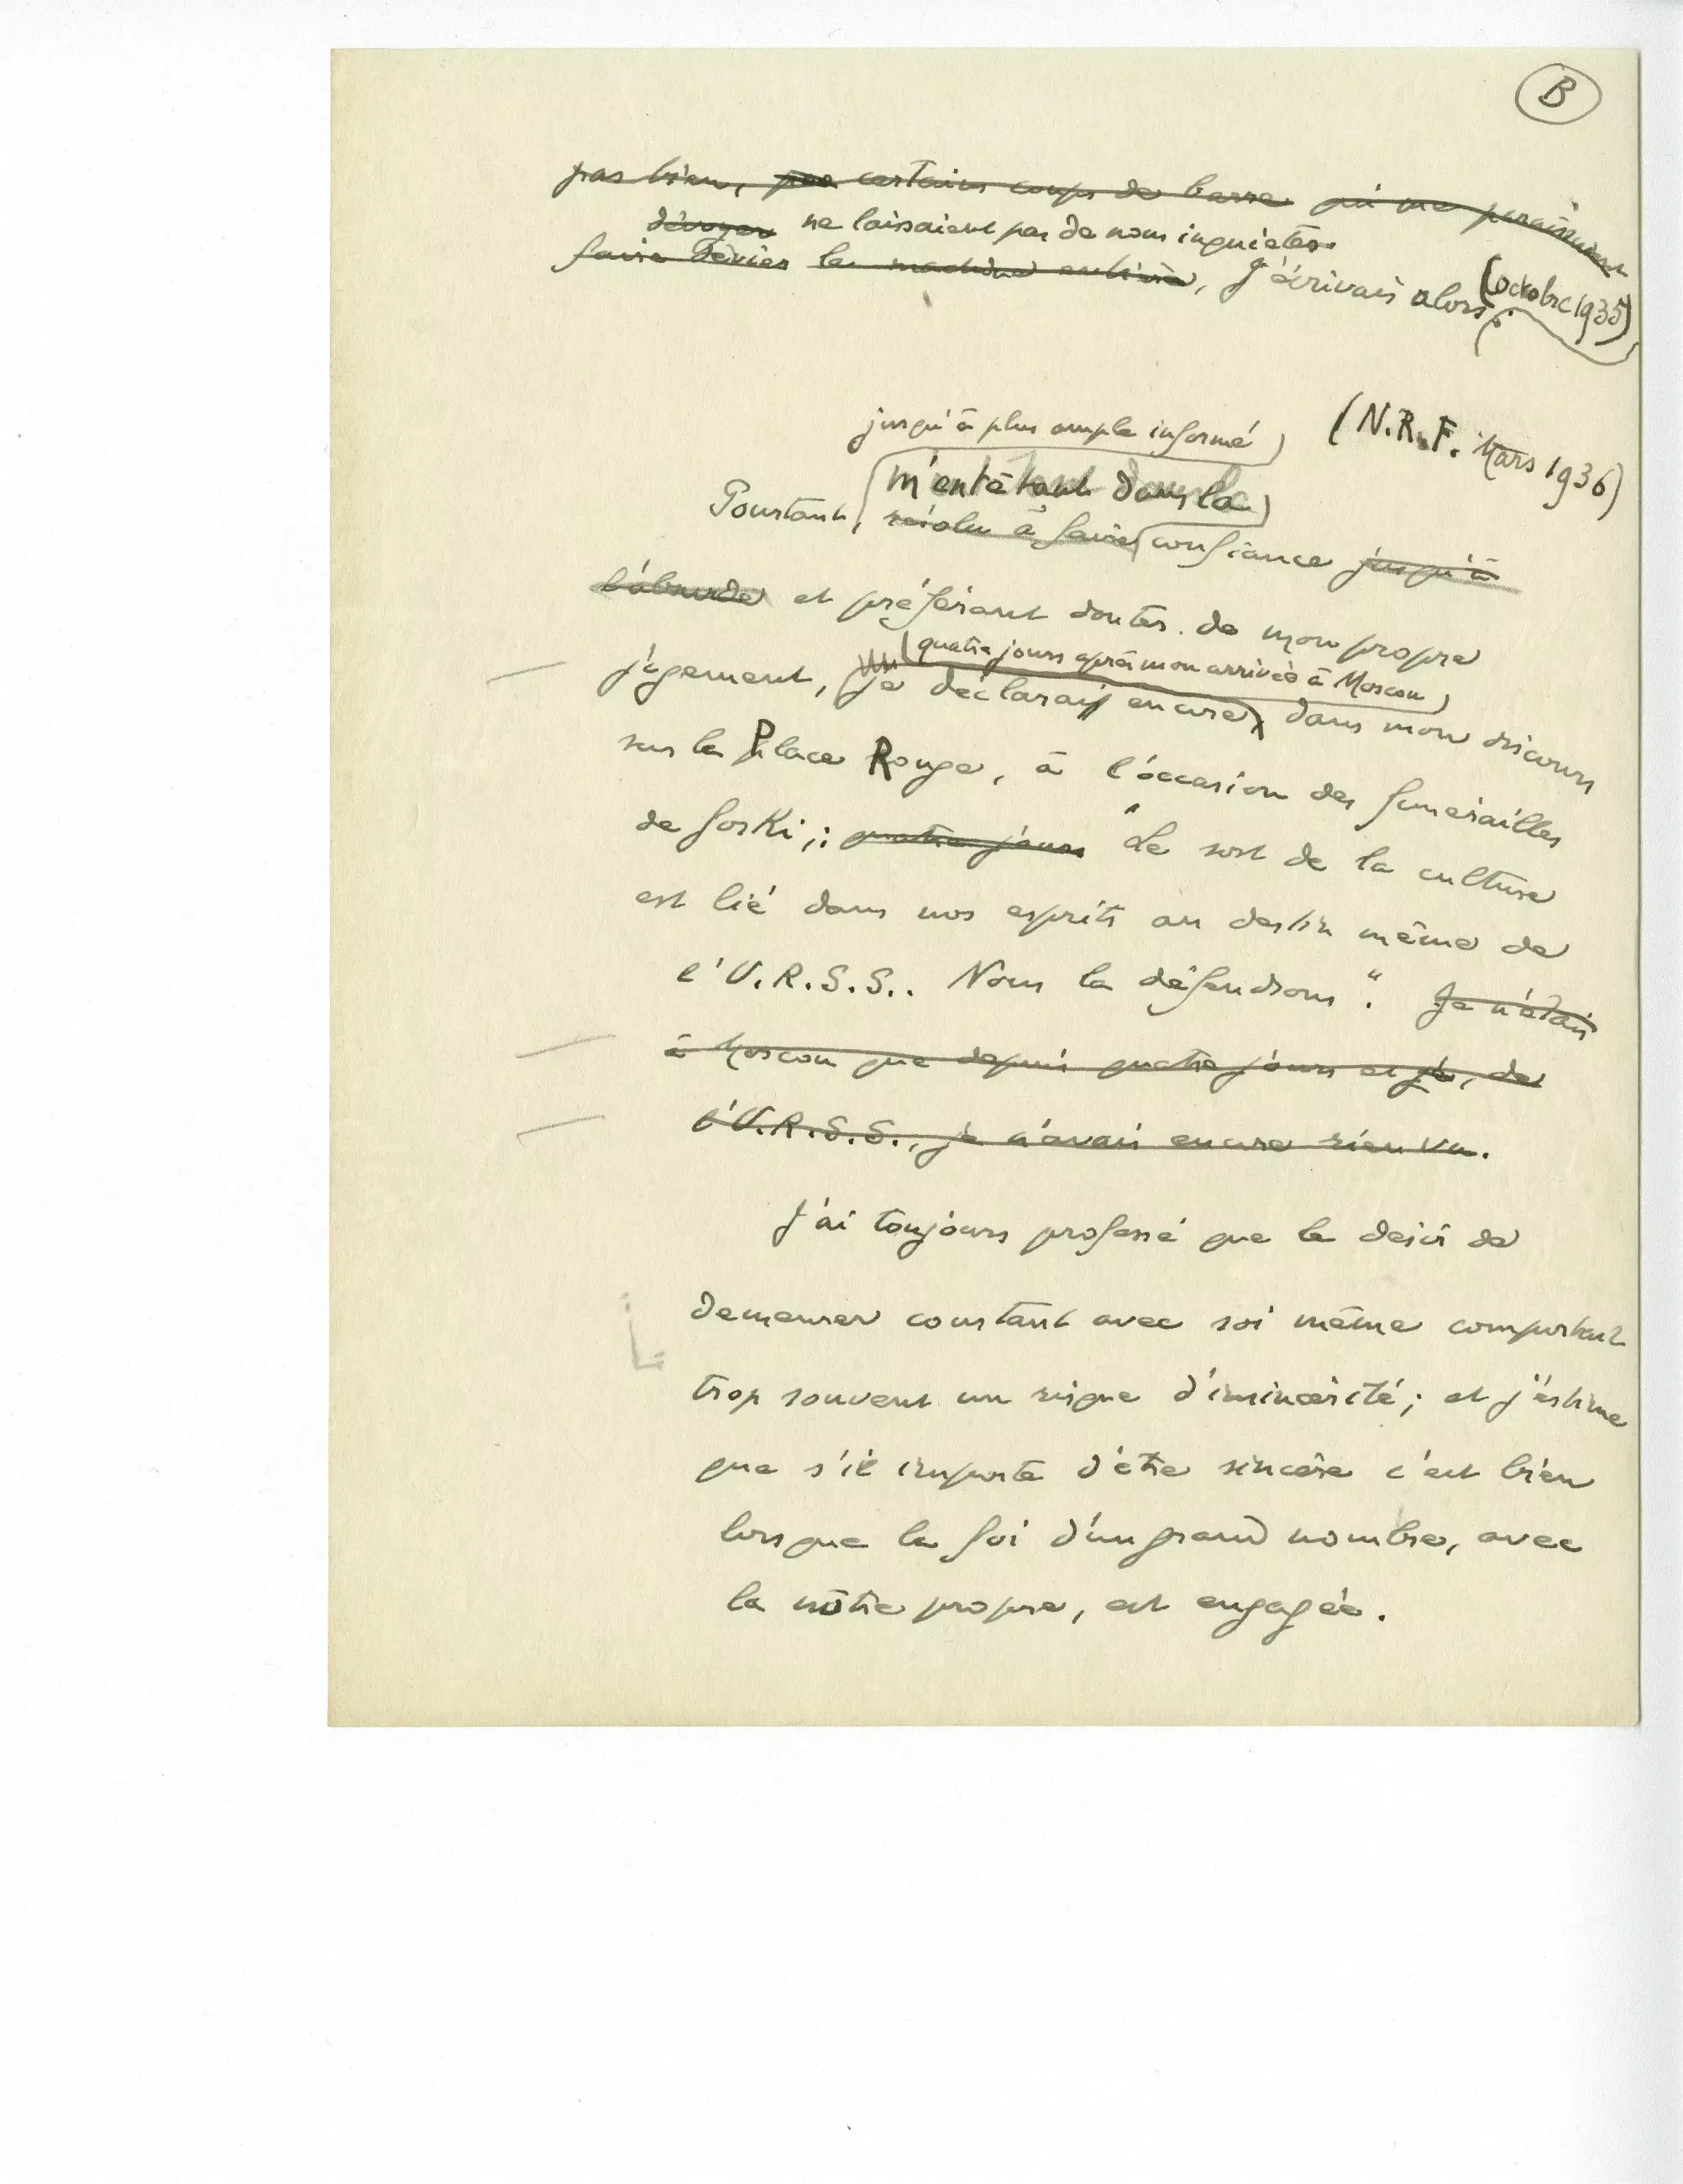 B
pas bien, par certains coups de barre qui me paraissaient
dévoyer ne laissaient pas de nous inquiéter.
faire dévier la machine entière, J'écrivais alors : (octobre 1935)
jusqu'à plus ample informé
(N.R.F. Mars 1936)
m'entêtant dans la
Pourtant, résolu à faire confiance jusqu'à
l'absurde et préférant douter de mon propre
quatre jours après mon arrivée à Moscou
jugement, je déclarais encore, dans mon discours
sur la Place Rouge, à l'occasion des funérailles
de Gorki,: quatre jours "Le sort de la culture
est lié dans nos esprits au destin même de
l'U.R.S.S.. Nous la défendrons". Je n'étais
à Moscou que depuis quatre jours et je, de
l'U.R.S.S., je n'avais encore rien vu.
J'ai toujours professé que le désir de
demeurer constant avec soi même comportait
trop souvent un risque d'insincérité; et j'estime
que s'il importe d'être sincère c'est bien
lorsque la foi d'un grand nombre, avec
la nôtre propre, est engagée.